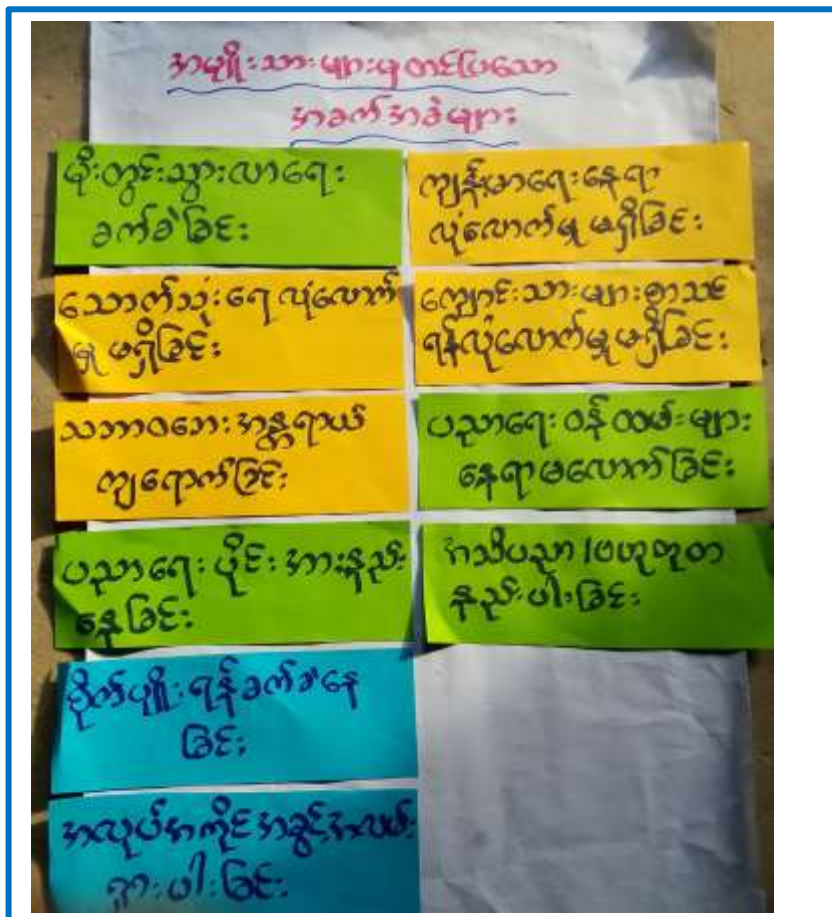 အမျိုးသားများမှတင်ပြသော
အခက်အခဲများ
မိုးတွင်းသွားလာရေး
ခက်ခဲခြင်း
သောက်သုံးရေ လုံလောက်
မှု မရှိခြင်း
သဘာဝဘေး အန္တရာယ်
ကျရောက်ခြင်း
ပညာရေး ပိုင်း အားနည်း
နေခြင်း
စိုက်ပျိုးရန်ခက်ခဲနေ
ခြင်း
အလုပ်အကိုင်အခွင့်အလမ်း
ရှားပါးခြင်း
ကျန်းမာရေးနေရာ
လုံလောက်မှု မရှိခြင်း
ကျောင်းသားများစာသင်
ရန်လုံလောက်မှုမရှိခြင်း
ပညာရေး ဝန်ထမ်းများ
နေရာမလောက်ခြင်း
အသိပညာ/ဗဟုသုတ
နည်းပါးခြင်း